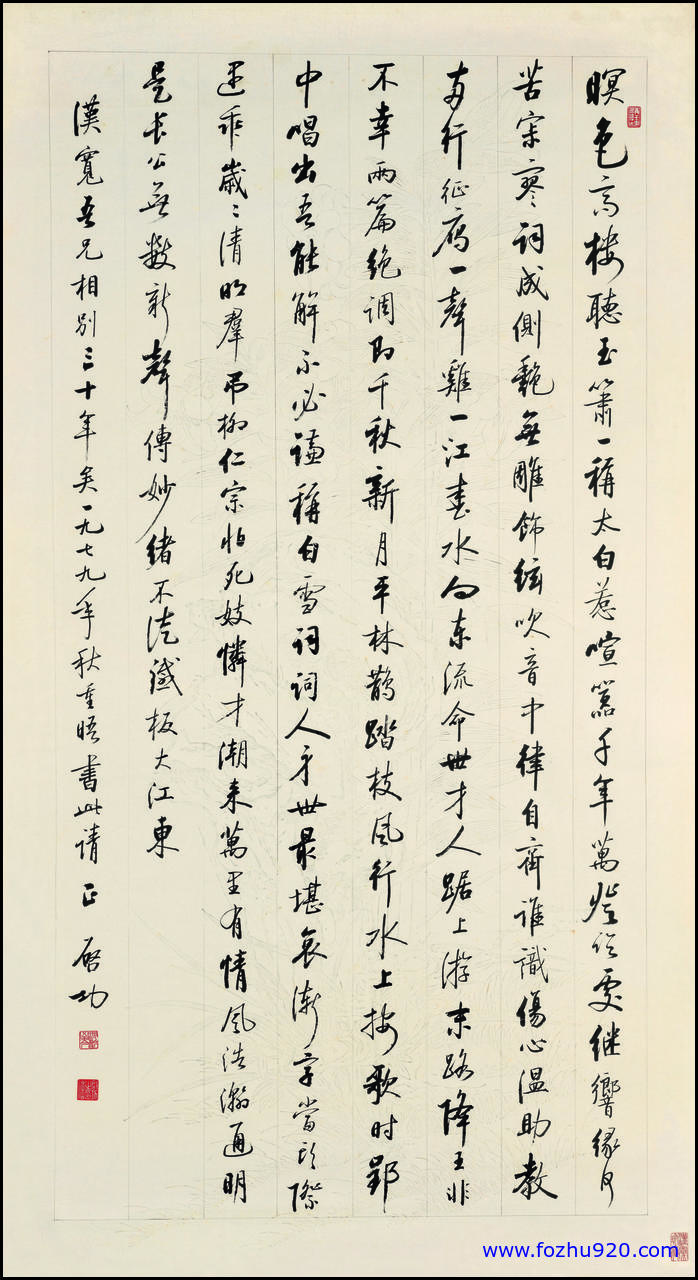 暝色高樓聽玉簫一稱太白惹喧囂千年萬處繼響緣何
苦寂寥詞成側艷無雕飾絃吹音中律自齊誰識傷心溫助教
兩行征雁一聲雞一江春水向東流命世才人踞上游末路降王非
不幸兩篇絕調即千秋新月平林鵲踏枝風行水上按歌時郢
中唱出吾能解不必謙稱白雪詞詞人身世最堪哀漸字當頭際
運乖歲〻清明羣弔柳仁宗怕死妓憐才潮來萬里有情風浩瀚通明
是長公無數新聲傳妙緒不徒鐵板大江東
漢寬吾兄相別三十年矣一九七九年秋重晤書此請正 啓功
www.fozhu920.com